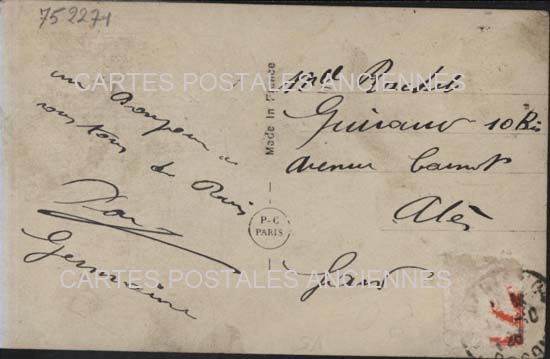 752271
CARTES POSTALES ANCIENNES
un Bonjour a
vous tous de Paris
Germaine
Made In France
P-C
PARIS
Mlle
10 Bis
Avenue Carnot
Alès
Gard
CARTES POSTALES ANCIENNES